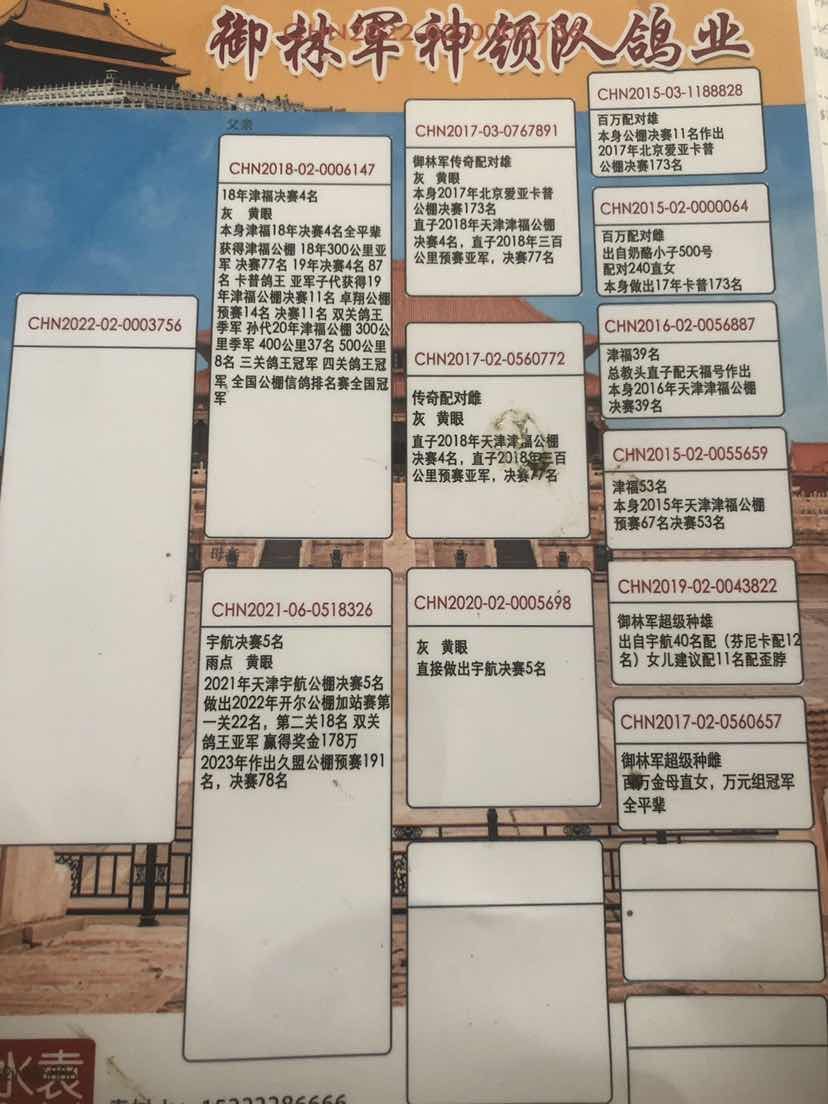 御林军神领队鸽业
CHN2022-02-0003756
CHN2022-02-0003756
父亲
CHN2018-02-0006147
18年津福决赛4名
灰 黄眼
本身津福18年决赛4名全平辈
获得津福公棚 18年300公里亚
军 决赛77名 19年决赛4名 87
名 卡普鸽王 亚军子代获得19
年津福公棚决赛11名 卓翔公棚
预赛14名 决赛11名 双关鸽王
季军 孙代20年津福公棚 300公
里季军 400公里37名 500公里
8名 三关鸽王冠军 四关鸽王冠
军 全国公棚信鸽排名赛全国冠
军
母亲
CHN2021-06-0518326
宇航决赛5名
雨点 黄眼
2021年天津宇航公棚决赛5名
做出2022年开尔公棚加站赛第
一关22名，第二关18名 双关
鸽王亚军 赢得奖金178万
2023年作出久盟公棚预赛191
名，决赛78名
CHN2017-03-0767891
御林军传奇配对雄
灰 黄眼
本身2017年北京爱亚卡普
公棚决赛173名
直子2018年天津津福公棚
决赛4名，直子2018年三百
公里预赛亚军，决赛77名
CHN2017-02-0560772
传奇配对雌
灰 黄眼
直子2018年天津津福公棚
决赛4名，直子2018年三百
公里预赛亚军，决赛77名
CHN2020-02-0005698
灰 黄眼
直接做出宇航决赛5名
CHN2015-03-1188828
百万配对雄
本身公棚决赛11名作出
2017年北京爱亚卡普
公棚决赛173名
CHN2015-02-0000064
百万配对雌
出自奶酪小子500号
配对240直女
本身做出17年卡普173名
CHN2016-02-0056887
津福39名
总教头直子配天福号作出
本身2016年天津津福公棚
决赛39名
CHN2015-02-0055659
津福53名
本身2015年天津津福公棚
预赛67名决赛53名
CHN2019-02-0043822
御林军超级种雄
出自宇航40名配（芬尼卡配12
名）女儿建议配11名配歪脖
CHN2017-02-0560657
御林军超级种雌
百万金母直女，万元组冠军
全平辈
水袁